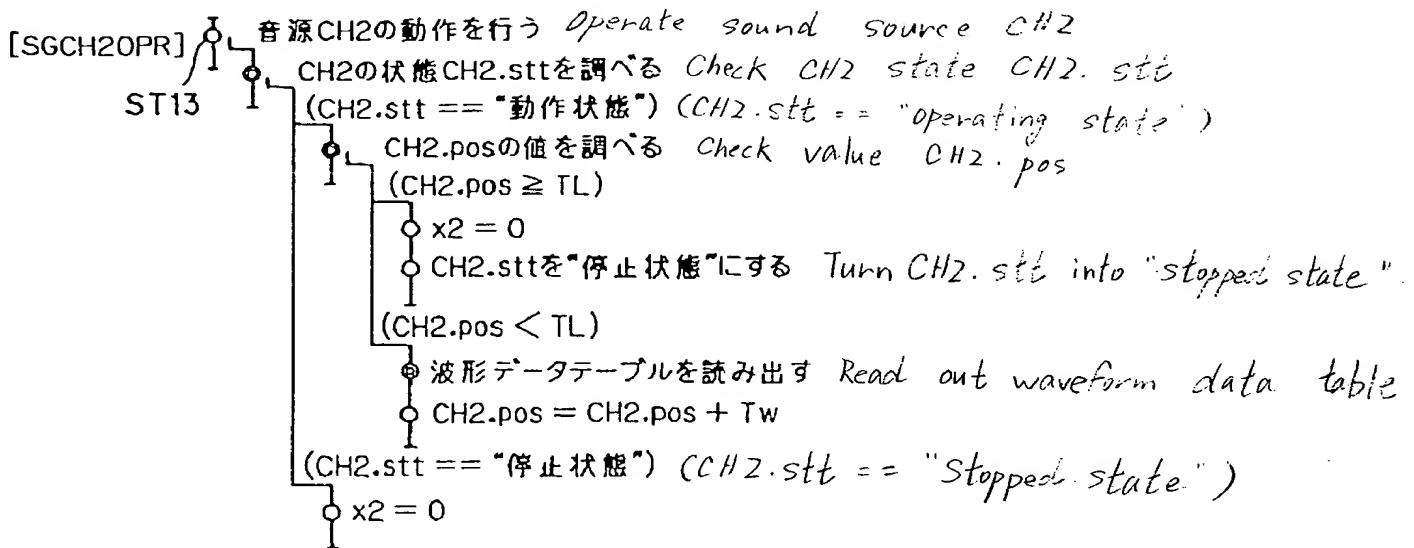 [SGCH2OPR] 音源CH2の動作を行う Operate sound source CH2
ST13
CH2の状態CH2.sttを調べる Check CH2 state CH2. stt
(CH2.stt == "動作状態") (CH2.stt == "Operating state")
CH2.posの値を調べる Check value CH2. pos
(CH2.pos ≧ TL)
x2 = 0
CH2.sttを"停止状態"にする Turn CH2. stt into "stopped state".
(CH2.pos < TL)
波形データテーブルを読み出す Read out waveform data table
CH2.pos = CH2.pos + Tw
(CH2.stt == "停止状態") (CH2.stt == "Stopped state")
x2 = 0